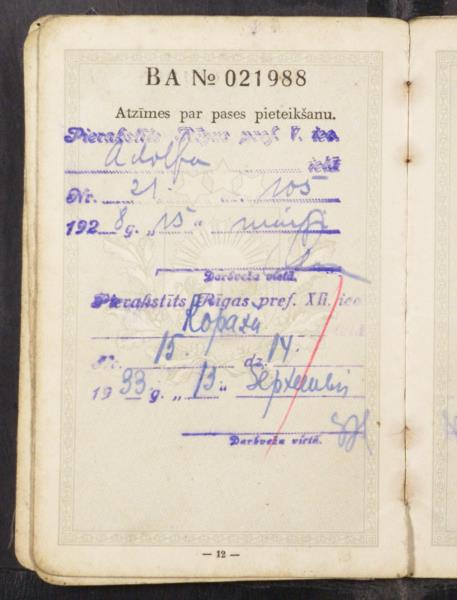 BA № 021988
Atzīmes par pases pieteikšanu.
Pierakstīts Rīgas pref. V. iec.
Adolfa ielā
Nr. 21 105
1928 g. „15“
Darbveža vietā.
Pierakstīts Rīgas pref. XII. iec
Ropažu
Nr. 15. dz. 14.
1933 g. „13“ Septembrī
Darbveža vietā.
— 12 —